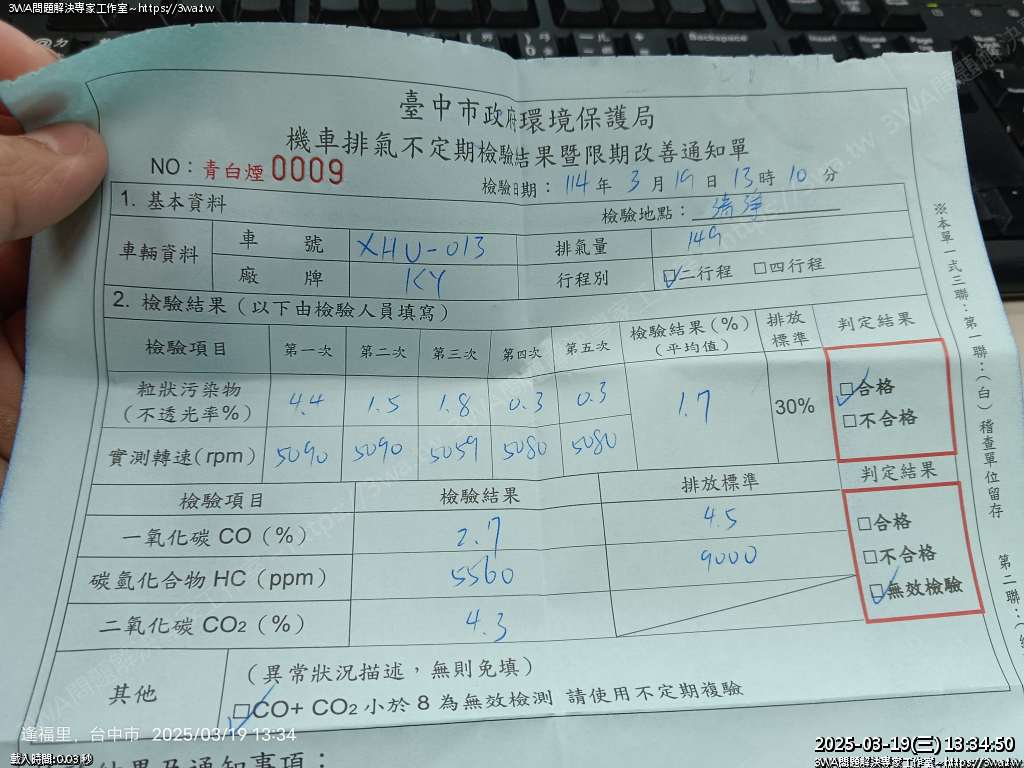 3WA問題解決專家工作室~https://3wa.tw
3WA問題解決專家工作室~https://3wa.tw
Backspace
臺中市政府環境保護局
機車排氣不定期檢驗結果暨限期改善通知單
NO：青白煙0009
檢驗日期：114年3月19日13時10分
1. 基本資料
檢驗地點：
車輛資料
車 號 XHU-013 排氣量 149
廠 牌 KY 行程別 ☑二行程 □四行程
2. 檢驗結果（以下由檢驗人員填寫）
檢驗項目 第一次 第二次 第三次 第四次 第五次 檢驗結果(%)（平均值） 排放標準 判定結果
粒狀污染物（不透光率%） 4.4 1.5 1.8 0.3 0.3 1.7 30% ☑合格 □不合格
實測轉速(rpm) 5090 5090 5059 5080 5080
檢驗項目 檢驗結果 排放標準 判定結果
一氧化碳 CO（%） 2.7 4.5 □合格
碳氫化合物 HC（ppm） 5560 9000 □不合格
二氧化碳 CO2（%） 4.3 ☑無效檢驗
其他
（異常狀況描述，無則免填）
☑CO+ CO2 小於 8 為無效檢測 請使用不定期複驗
結果及通知事項：
※本單一式三聯：第一聯：（白）稽查單位留存
第二聯：（
逢福里, 台中市 2025/03/19 13:34
載入時間: 0.03 秒
2025-03-19(三) 13:34:50
3WA問題解決專家工作室~https://3wa.tw